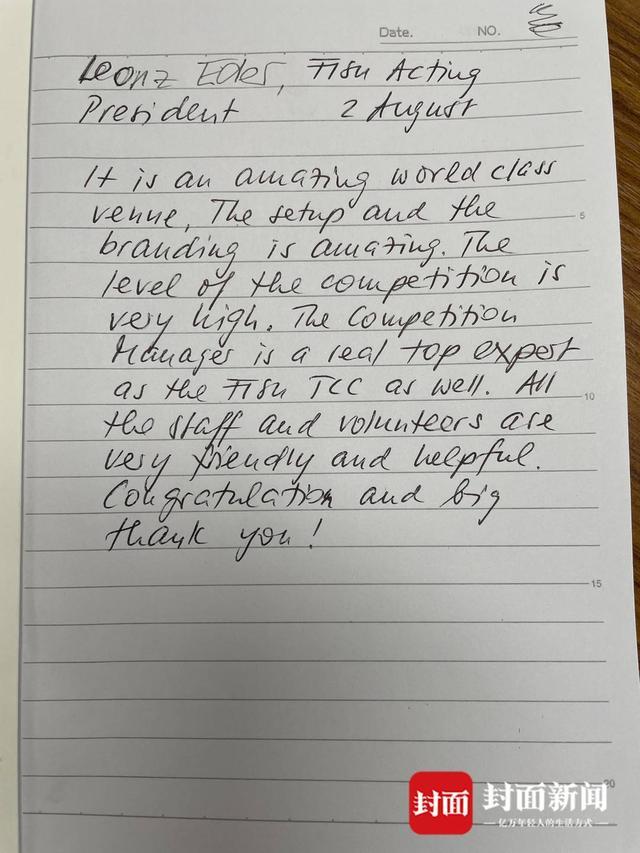 Date. NO.
Leonz Eder, FISU Acting
President 2 August
It is an amazing world class
venue. The setup and the
branding is amazing. The
level of the competition is
very high. The Competition
Manager is a real top expert
as the FISU TCC as well. All
the staff and volunteers are
very friendly and helpful.
Congratulation and big
thank you!
5
10
15
20
封面 封面新闻
亿万年轻人的生活方式